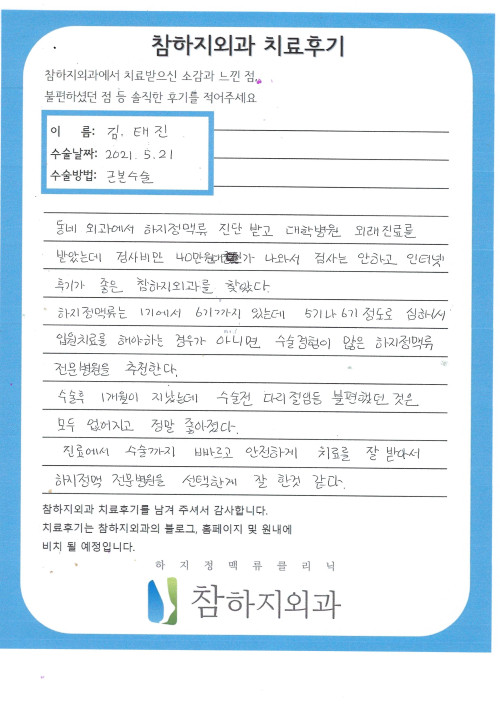 참하지외과 치료후기
참하지외과에서 치료받으신 소감과 느낀 점,
불편하셨던 점 등 솔직한 후기를 적어주세요
이 름: 김. 태진
수술날짜: 2021. 5. 21
수술방법: 근본수술
동네 외과에서 하지정맥류 진단 받고 대학병원 외래진료를
받았는데 검사비만 40만원 가 나와서 검사는 안하고 인터넷
후기가 좋은 참하지외과를 찾았다.
하지정맥류는 1기에서 6기가지 있는데 5기나 6기 정도로 심하셔서
입원치료를 해야하는 경우가 아니면 수술경험이 많은 하지정맥류
전문병원을 추천한다.
수술후 1개월이 지났는데 수술전 다리절임등 불편했던 것은
모두 없어지고 정말 좋아졌다.
진료에서 수술까지 빠르고 안전하게 치료를 잘 받아서
하지정맥 전문병원을 선택한게 잘 한것 같다.
참하지외과 치료후기를 남겨 주셔서 감사합니다.
치료후기는 참하지외과의 블로그, 홈페이지 및 원내에
비치 될 예정입니다.
하지정맥류클리닉
참하지외과